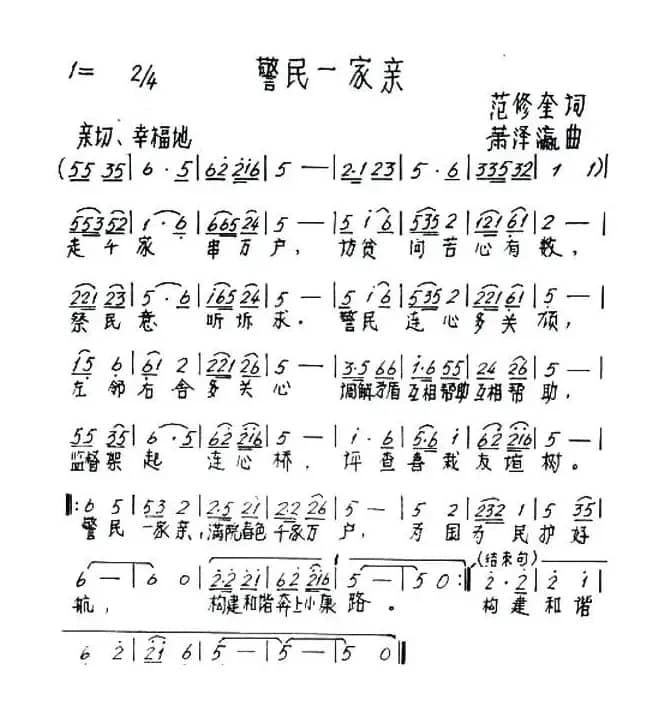 1= 2/4 警民一家亲
范修奎词
亲切、幸福地 萧泽瀛曲
(55 35 | 6·5 | 62 216 | 5 — | 2·1 23 | 5·6 | 33532 | 1 1)|
55352 | 1·6 | 66524 | 5 — | 5 i6 | 5352 | 121 61 | 2 — |
走千家 串万户，访贫问苦心有数，
221 23 | 5·6 | i65 24 | 5 — | 5 i6 | 5352 | 221 61 | 5 — |
察民意 听诉求。警民连心多关顾，
15 6 | 61 2 | 221 26 | 5 — | 3·5 66 | i·6 55 | 24 26 | 5 — |
左邻右舍多关心 调解矛盾互相帮助互相帮助，
55 35 | 6·5 | 62 216 | 5 — | i·6 | 5·6 i | 62 216 | 5 — |
监督架起连心桥，评查喜栽友谊树。
‖: 6 5 | 53 2 | 2·5 21 | 2·2 26 | 5 — | 5 2 | 232 1 | 5 35 |
警民一家亲，满院春色千家万户，为国为民护好
6 — | 6 0 | 2·2 21 | 62 216 | 5 — | 5 0 :‖ (结束句) 2·2 | 2 i |
航，构建和谐奔上小康路。构建和谐
6 2 | 21 6 | 5 — | 5 — | 5 0 ‖